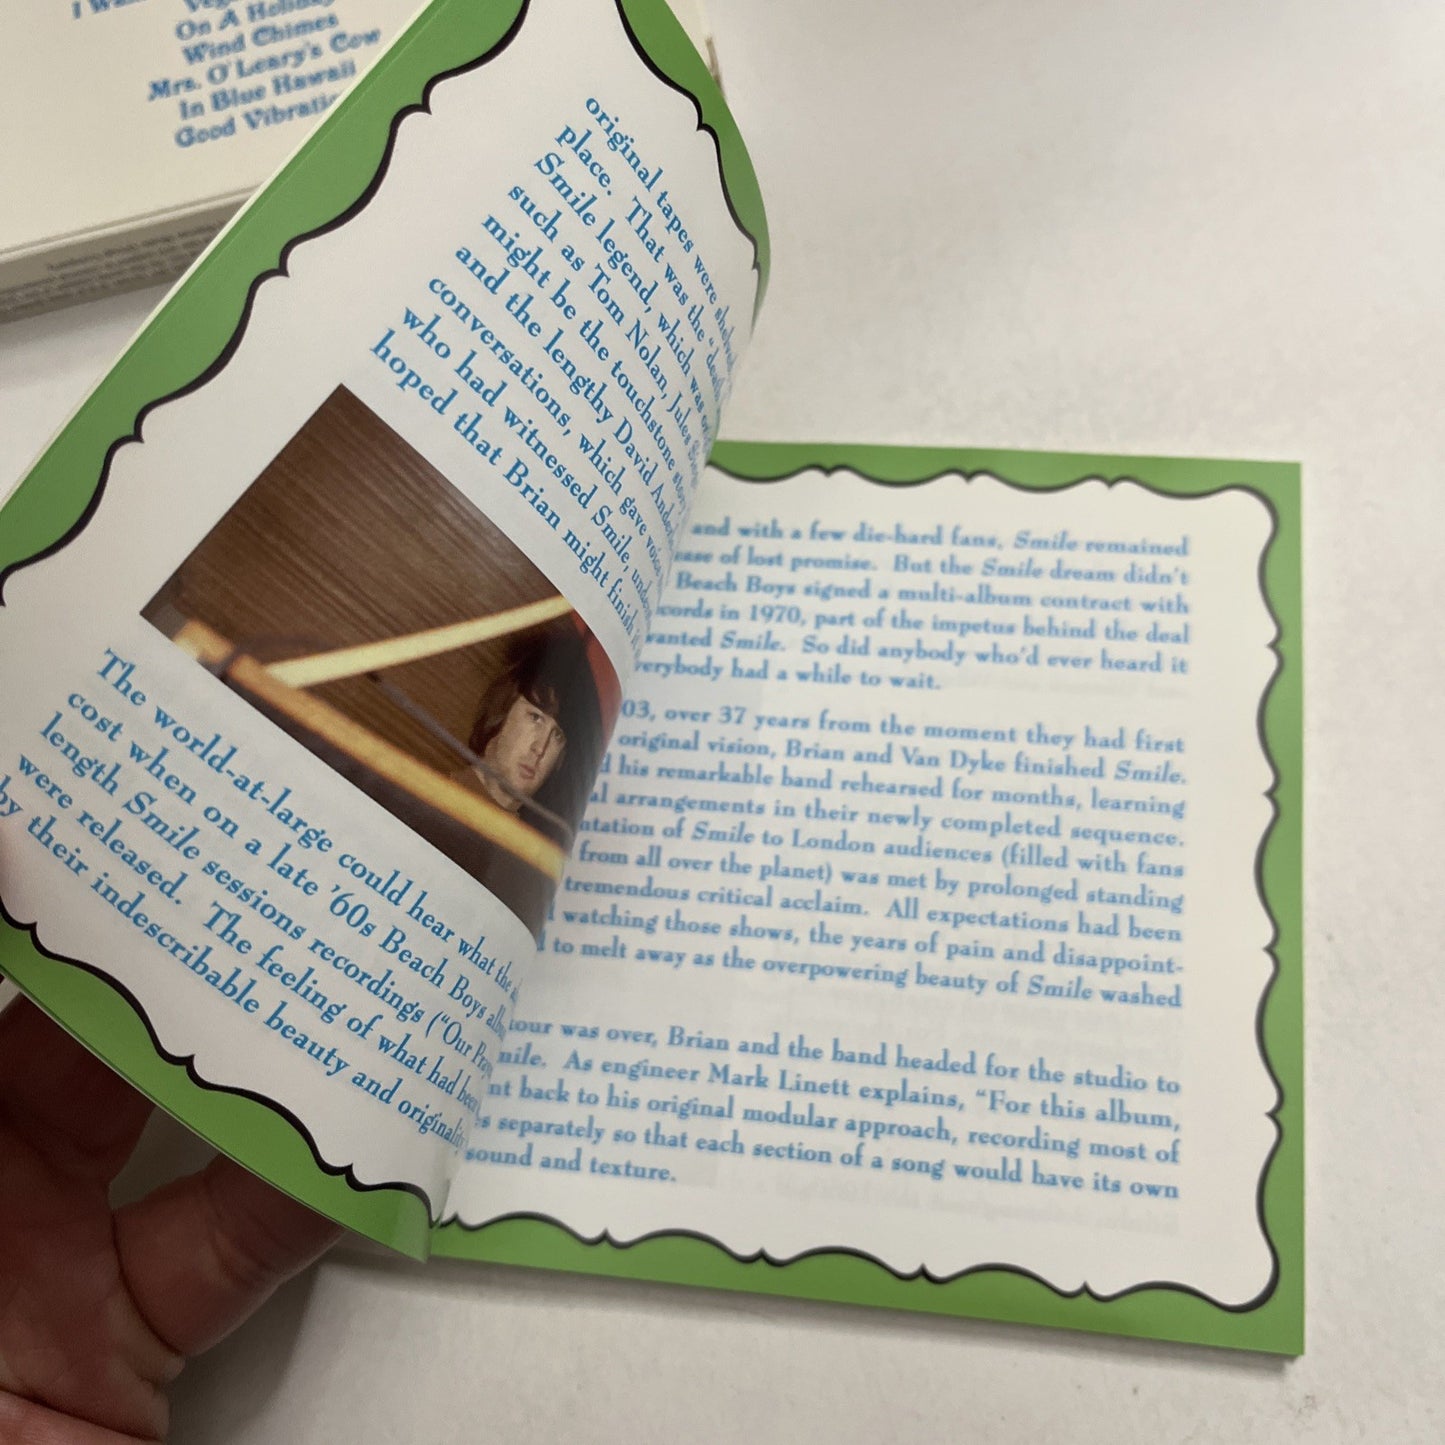 I Wan
On A Holiday
Wind Chimes
Mrs. O'Leary's Cow
In Blue Hawaii
Good Vibratio
original tapes were shelved
place. That was the "death
Smile legend, which was
such as Tom Nolan, Jules
might be the touchstone story
and the lengthy David
conversations, which gave voice
who had witnessed Smile,
hoped that Brian might finish it
The world-at-large could hear what the
cost when on a late '60s Beach Boys
length Smile sessions recordings ("Our
were released. The feeling of what had been
by their indescribable beauty and originality
and with a few die-hard fans, Smile remained
ase of lost promise. But the Smile dream didn't
Beach Boys signed a multi-album contract with
cords in 1970, part of the impetus behind the deal
wanted Smile. So did anybody who'd ever heard it
verybody had a while to wait.
03, over 37 years from the moment they had first
original vision, Brian and Van Dyke finished Smile.
d his remarkable band rehearsed for months, learning
al arrangements in their newly completed sequence.
ntation of Smile to London audiences (filled with fans
from all over the planet) was met by prolonged standing
tremendous critical acclaim. All expectations had been
watching those shows, the years of pain and disappoint-
d to melt away as the overpowering beauty of Smile washed
tour was over, Brian and the band headed for the studio to
mile. As engineer Mark Linett explains, "For this album,
nt back to his original modular approach, recording most of
s separately so that each section of a song would have its own
sound and texture.